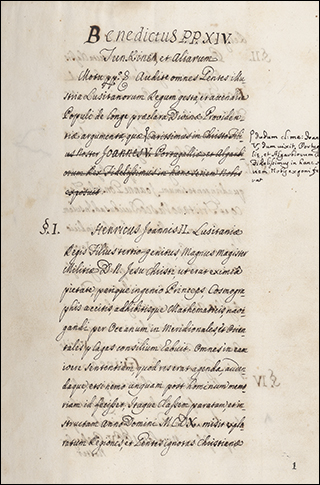 Benedictus P.P. XIV.
Junkinen, et Aliarum
Motu pp.º Audite omnes Gentes illu
stria Lusitanorum Regum gesta, et attendite
Populi de longe praeclara Divinae Providen
tiae argumenta, quae Carissimus in Christo Fili
us Noster Joannes V. Portugalliae et Algarb
iorum Rex Fidelissimus in
exposuit
dum
V. dum vixit, Portug
liae, et Algarbiorum
Fidelissimus in
Nobis exponi fe
§. I. Henricus Joannis II. Lusitaniae
Regis Filius tertio genitus Magnus Magister
Militiae D. N. Jesu Christi ut erat eximia
pietate, parique ingenio Princeps Cosmogra
phis accitis, adhibitisque Mathematicis navi
gandi per Oceanum in Meridionales et Orien
tales plagas consilium habuit. Omnes in eam
ivere Sententiam, quod res erat agenda, auden
daque, et nemo unquam post hominum memo
riam id fecisset, Itaque Classem paratam, et in
structam Anno Domini MCDX misit explo
ratum Regiones, et Gentes ignotas Christiano
§. II.
§. IV
1